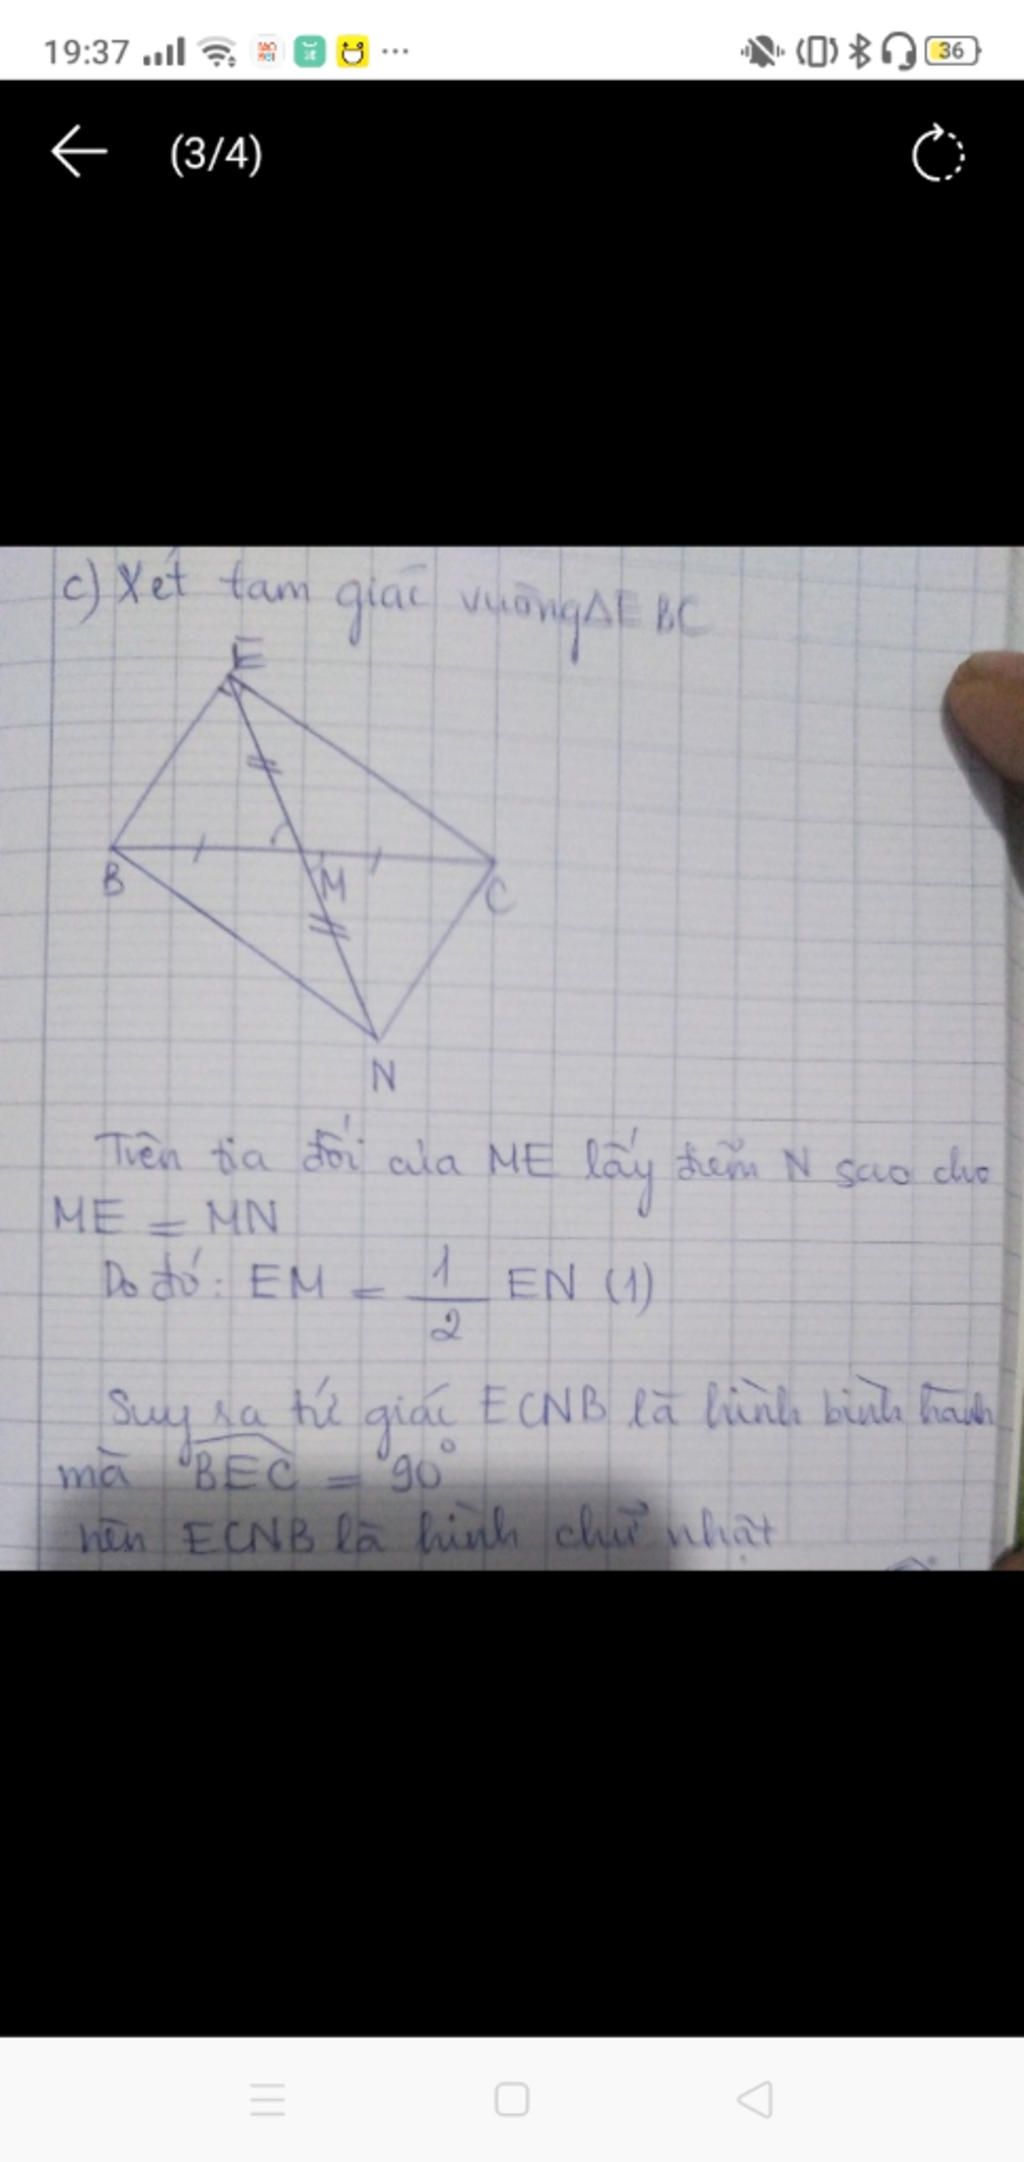 19:37
36
(3/4)
c) Xét tam giác vuông ΔEBC
E
B
M
C
N
Trên tia đối của ME lấy điểm N sao cho
ME = MN
Do đó: EM = 1/2 EN (1)
Suy ra tứ giác ECNB là hình bình hành
mà BEC = 90°
nên ECNB là hình chữ nhật